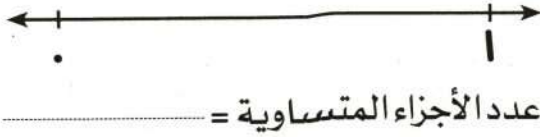 ٠ ١
عدد الأجزاء المتساوية = ..............................